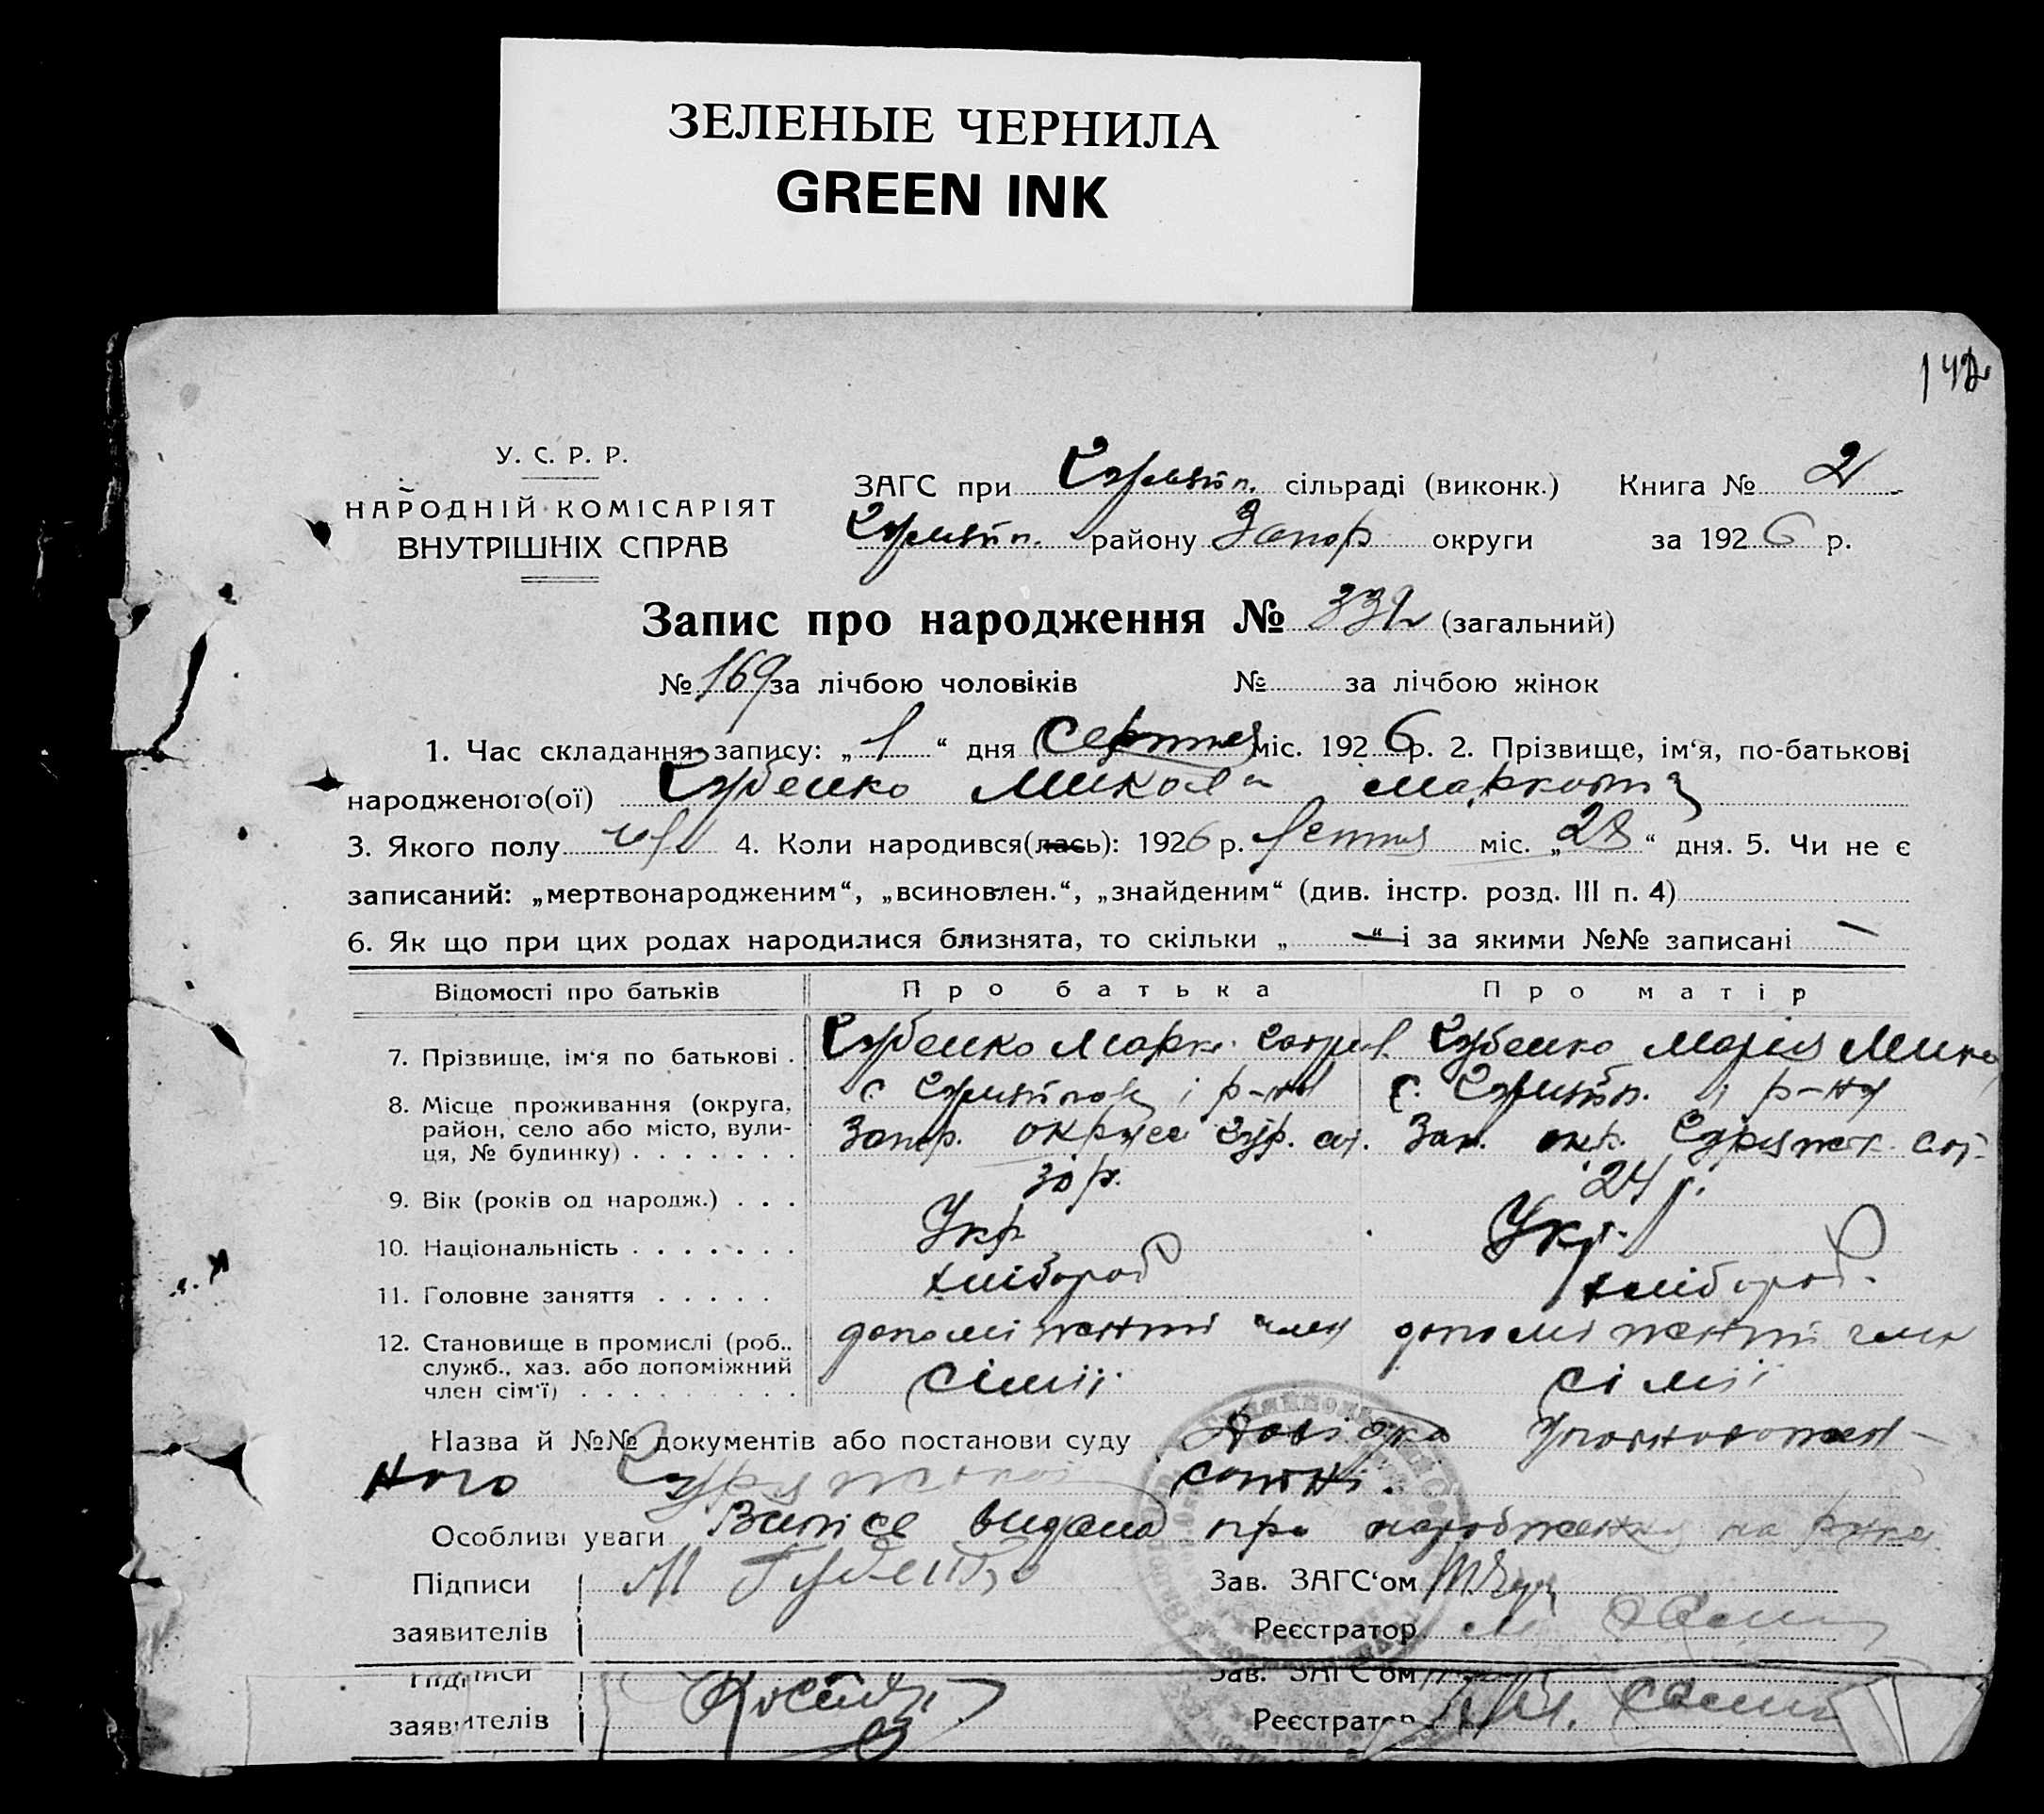 ЗЕЛЕНЫЕ ЧЕРНИЛА
GREEN INK
У. С. Р. Р.
НАРОДНІЙ КОМІСАРІЯТ
ВНУТРІШНІХ СПРАВ
ЗАГС при сільраді (виконк.) Книга № 2
району Запор округи за 1926 р.
Запис про народження № 332 (загальний)
№ 169 за лічбою чоловіків № за лічбою жінок
1. Час складання запису: „ 1 “ дня Серпня міс. 1926 р. 2. Прізвище, ім‘я, по-батькові
народженого(ої) Губенко Микола Маркови
3. Якого полу чол 4. Коли народився(лась): 1926 р. міс. „ 28 “ дня. 5. Чи не є
записаний: „мертвонародженим“, „всиновлен.“, „знайденим“ (див. інстр. розд. III п. 4)
6. Як що при цих родах народилися близнята, то скільки „ — “ і за якими №№ записані —
Відомості про батьків Про батька Про матір
7. Прізвище, ім‘я по батькові . Губенко Марко Губенко Марія Мико
8. Місце проживання (округа, с. і р-ну с. і р-ну
район, село або місто, вули- Запор. округи Зап. окр.
ця, № будинку) . . . . . . .
9. Вік (років од народж.) . . . 30 р. 24 р.
10. Національність . . . . . . . Укр Укр.
11. Головне заняття . . . . . хлібороб хлібороб.
12. Становище в промислі (роб., допоміжний член допоміжний член
служб., хаз. або допоміжний
член сім‘ї) . . . . . . . . . сімії сімії
Назва й №№ документів або постанови суду Довідка Уповноважен-
ного сотні.
Особливі уваги Випісь видана про народження на руки
Підписи М Губенко Зав. ЗАГС‘ом
заявителів Реєстратор
Підписи Зав. ЗАГС‘ом
заявителів Реєстратор